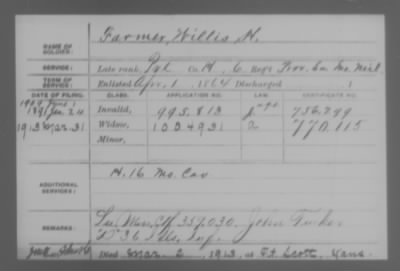 Farmer, Willis H.
NAME OF SOLDIER:
SERVICE: Late rank, Pvt Co. H, 6 Reg't Prov. En. Mo. Mil.
TERM OF SERVICE: Enlisted Apr. 1, 1864 Discharged , 1
DATE OF FILING. CLASS. APPLICATION NO. LAW. CERTIFICATE NO.
1891 Jan. 24 Invalid, 995.813 756.799
1913 Mar. 31 Widow, 1004931 770.115
Minor,
ADDITIONAL SERVICES: H. 16 Mo. Cav
REMARKS: Ctf 357,030. John
D 36 Ills. Inf.
Died Mar. 2, 1913, at Ft. Scott, Kans.